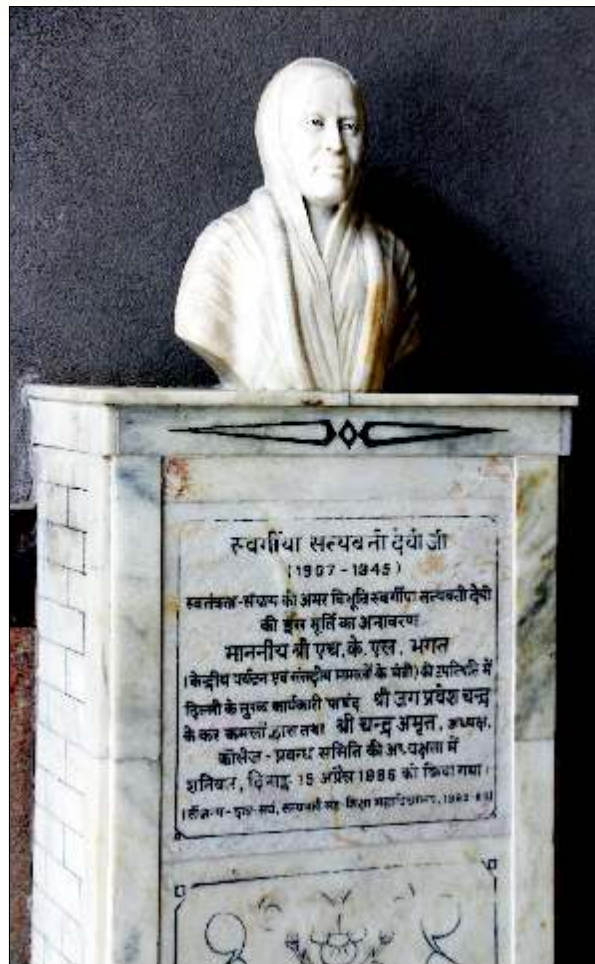 स्वर्गीया सत्यवती देवी जी
(1907-1945)
स्वतंत्रता-संग्राम की अमर विभूति स्वर्गीया सत्यवती देवी
की इस मूर्ति का अनावरण
माननीय श्री एच. के. एल. भगत
(केन्द्रीय पर्यटन एवं संसदीय मामलों के मंत्री) की उपस्थिति में
दिल्ली के मुख्य कार्यकारी पार्षद श्री जग प्रवेश चन्द्र
के कर कमलों द्वारा तथा श्री चन्द्र अमृत, अध्यक्ष,
कॉलेज - प्रबन्ध समिति की अध्यक्षता में
शनिवार, दिनाङ्क 15 अप्रैल 1986 को किया गया।